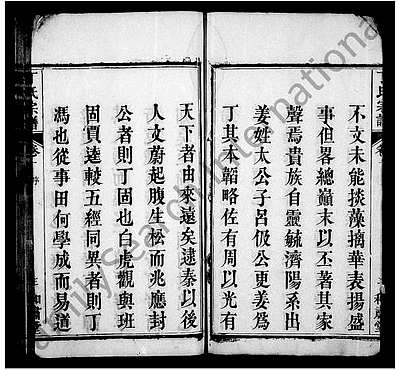 不文未能掞藻摛華表揚盛
事但畧總巔末以丕著其家
聲焉貴族自靈毓濟陽系出
姜姓太公子呂伋公更姜爲
丁其本韜略佐有周以光有
天下者由來遠矣逮秦以後
人文蔚起腹生松而兆應封
公者則丁固也白虎觀與班
固賈逵較五經同異者則丁
馮也從事田何學成而易道
氏宗譜
FamilySearch International